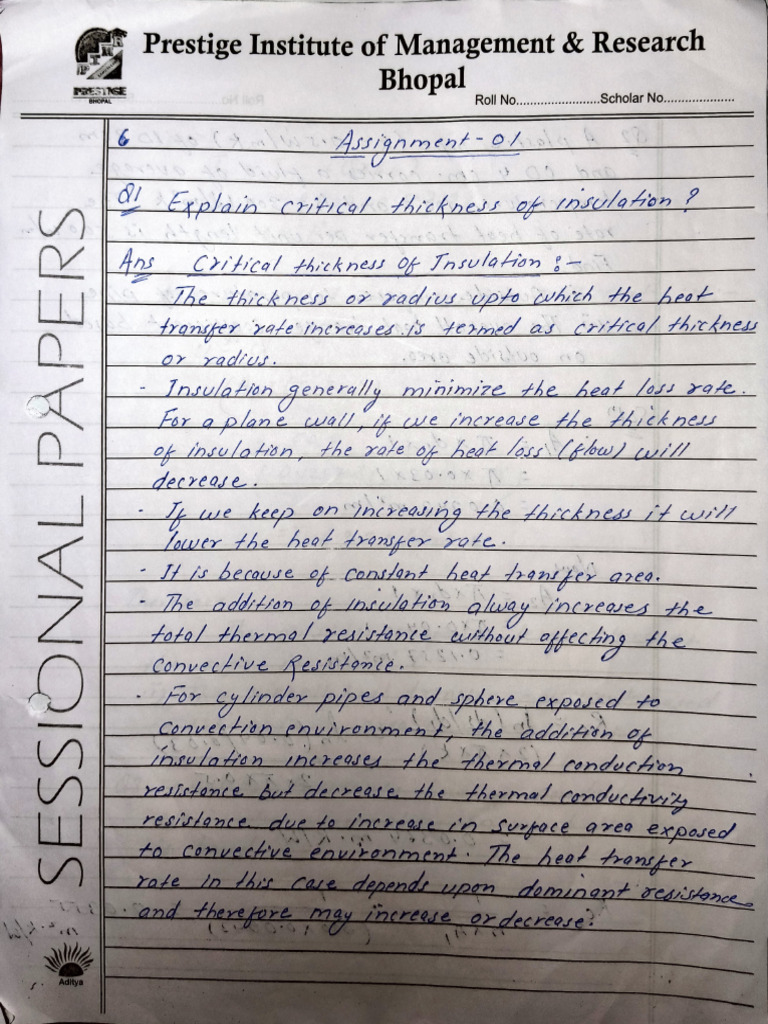 Prestige Institute of Management & Research
Bhopal
PRESTIGE
BHOPAL
Roll No........................Scholar No....................
6
Assignment-01
Q1 Explain critical thickness of insulation?
Ans Critical thickness of Insulation :-
The thickness or radius upto which the heat
transfer rate increases is termed as critical thickness
or radius.
- Insulation generally minimize the heat loss rate.
For a plane wall, if we increase the thickness
of insulation, the rate of heat loss (flow) will
decrease.
- If we keep on increasing the thickness it will
lower the heat transfer rate.
- It is because of constant heat transfer area.
- The addition of insulation alway increases the
total thermal resistance without affecting the
Convective Resistance.
- For cylinder pipes and sphere exposed to
convection environment, the addition of
insulation increases the thermal conduction
resistance but decrease the thermal conductivity
resistance due to increase in surface area exposed
to convective environment. The heat transfer
rate in this case depends upon dominant resistance
and therefore may increase or decrease.
SESSIONAL PAPERS
Aditya